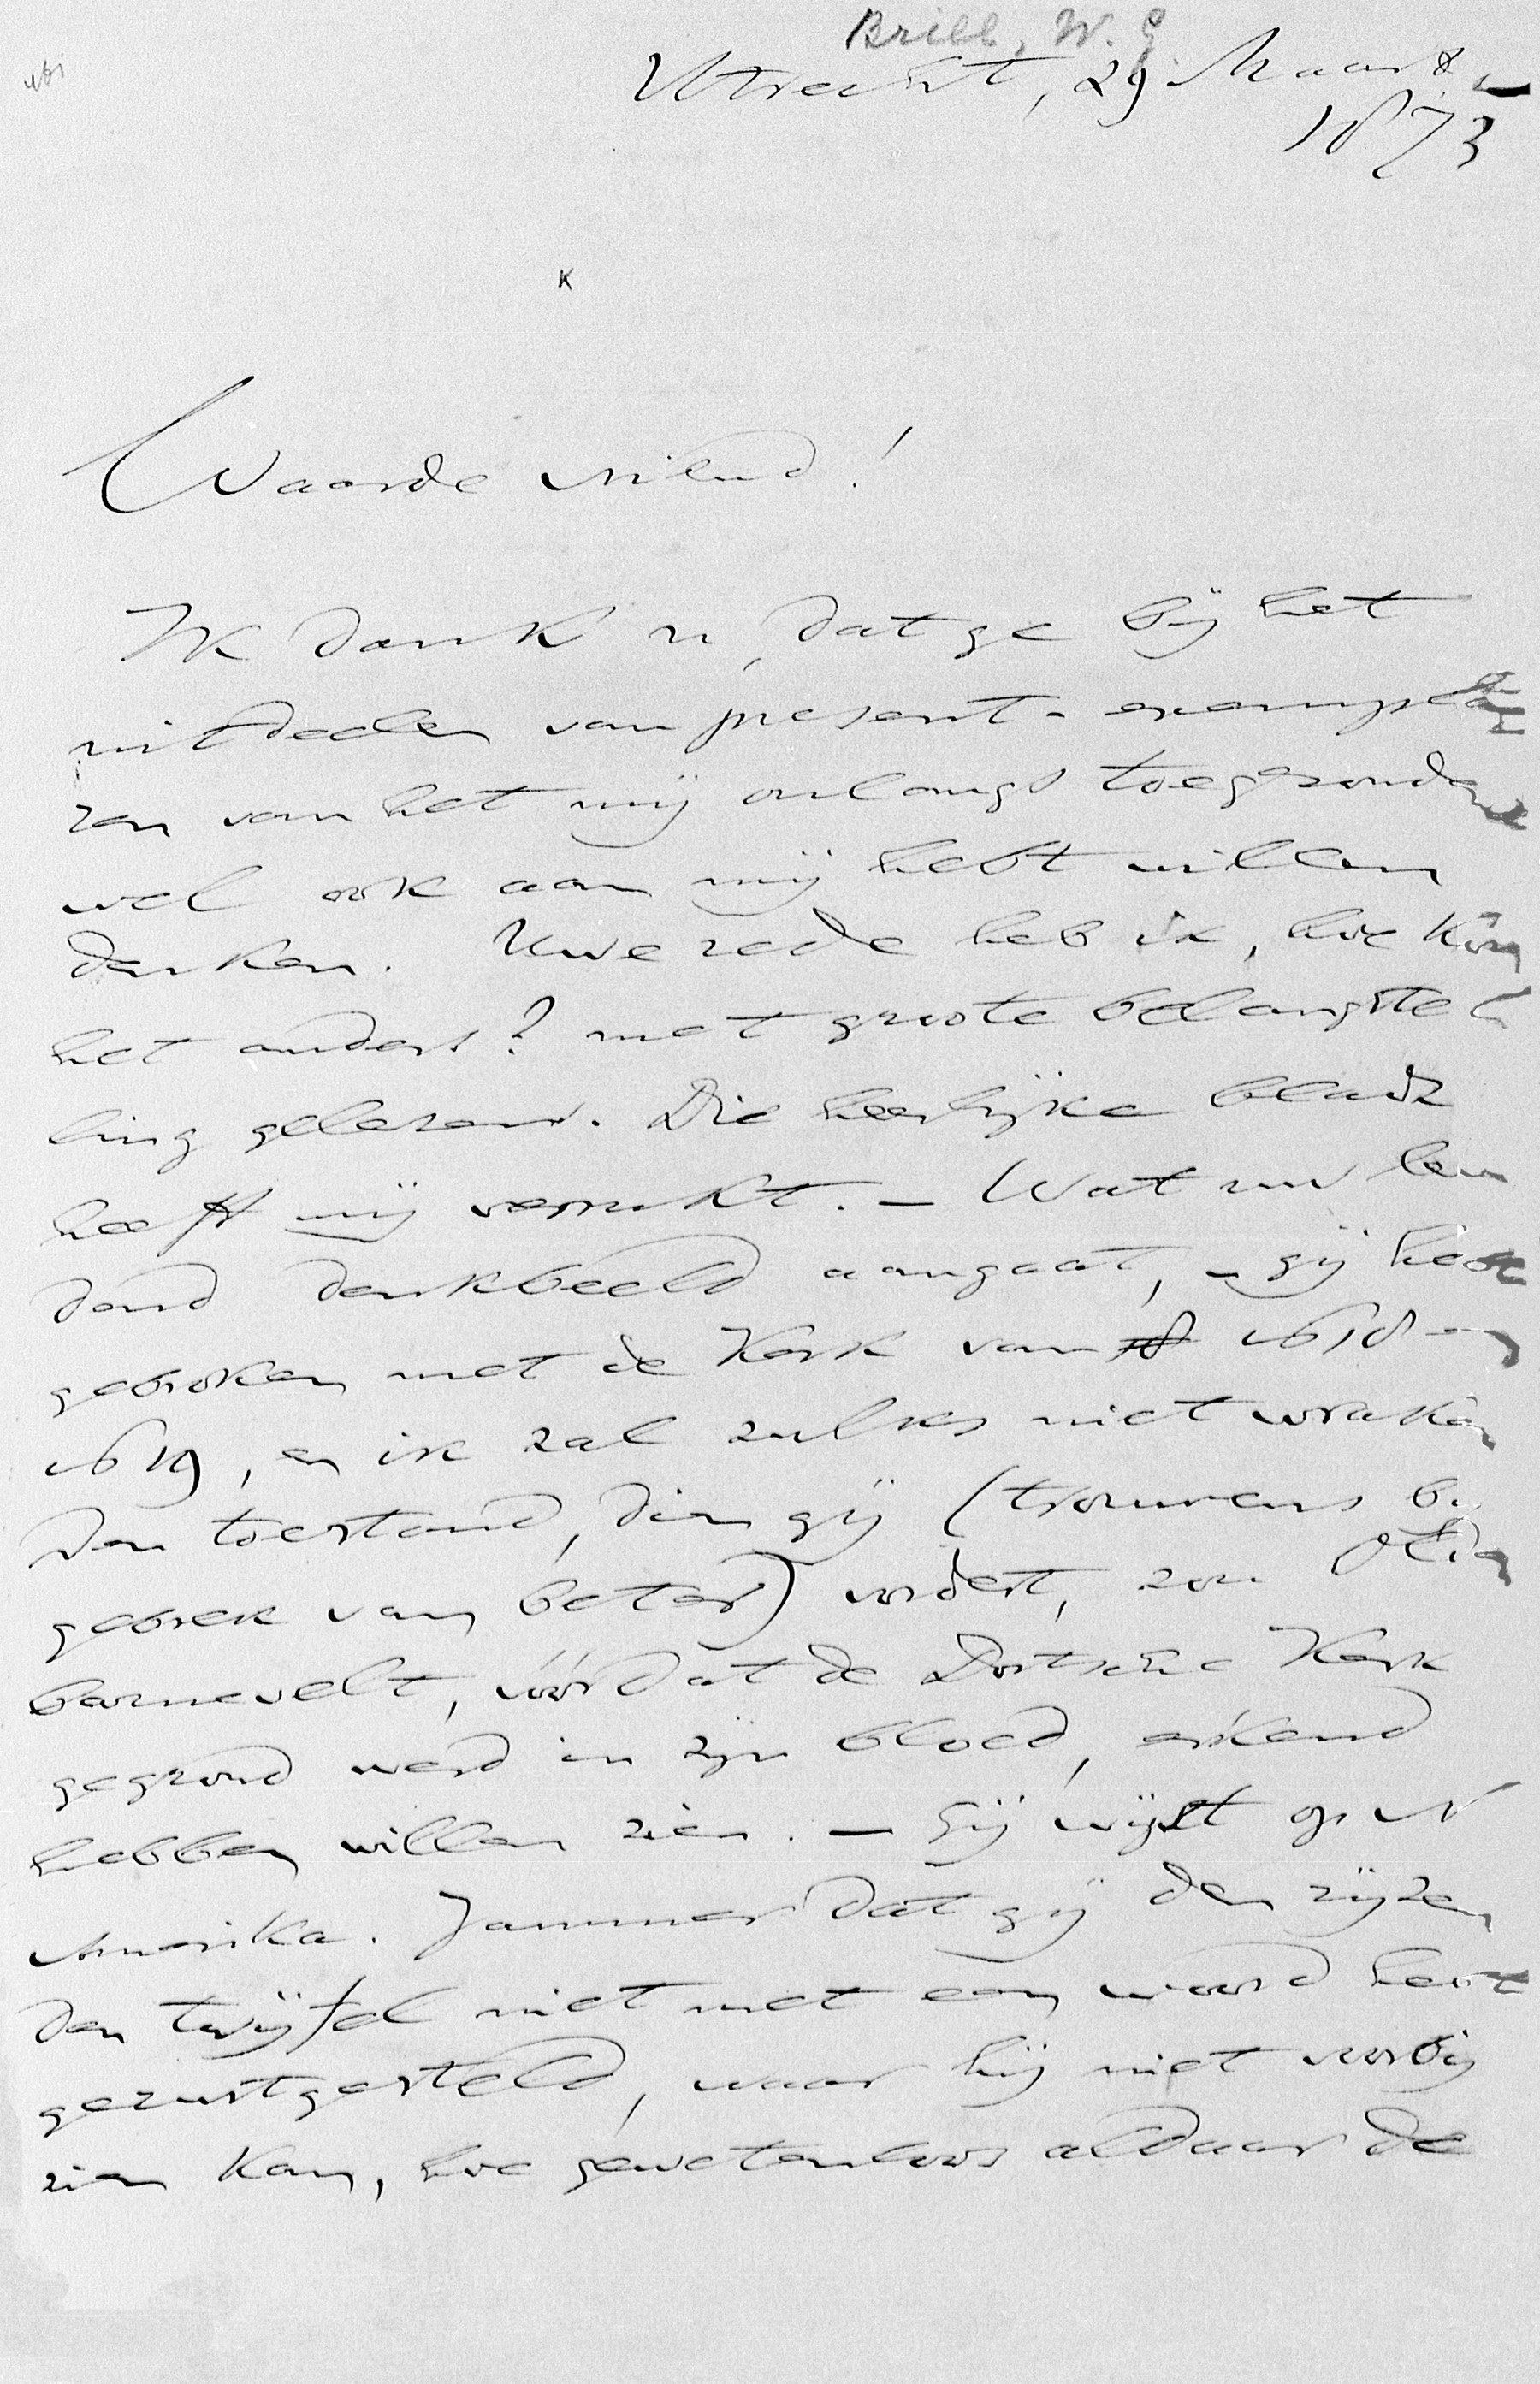 Brill, W. G
Utrecht, 29 Maart
1873
K
Waarde vriend!
Ik dank u, dat ge bij het
uitdeelen van present-exempla
ren van het mij onlangs toegezonde
wel ook aan mij hebt willen
denken. Uwe rede heb ik, hoe kon
het anders? met groote belangstel
ling gelezen. Die heerlijke bladz
heeft mij verrukt. - Wat uw
dend denkbeeld aangaat, - gij hebt
gebroken met de Kerk van 1618 en
1619, en ik zal zulks niet wraken
Den toestand, dien gij (trouwens bij
gebrek van beter) vordert, zou Olden
barnevelt, vóórdat de Dortsche Kerk
gegrond werd in zijn bloed, erkend
hebben willen zien. - Gij wijst op N
Amerika. Jammer dat gij den rijzen
den twijfel niet met een woord hebt
gerustgesteld, waar hij niet voorbij
zien kan, hoe gewetenloos aldaar de